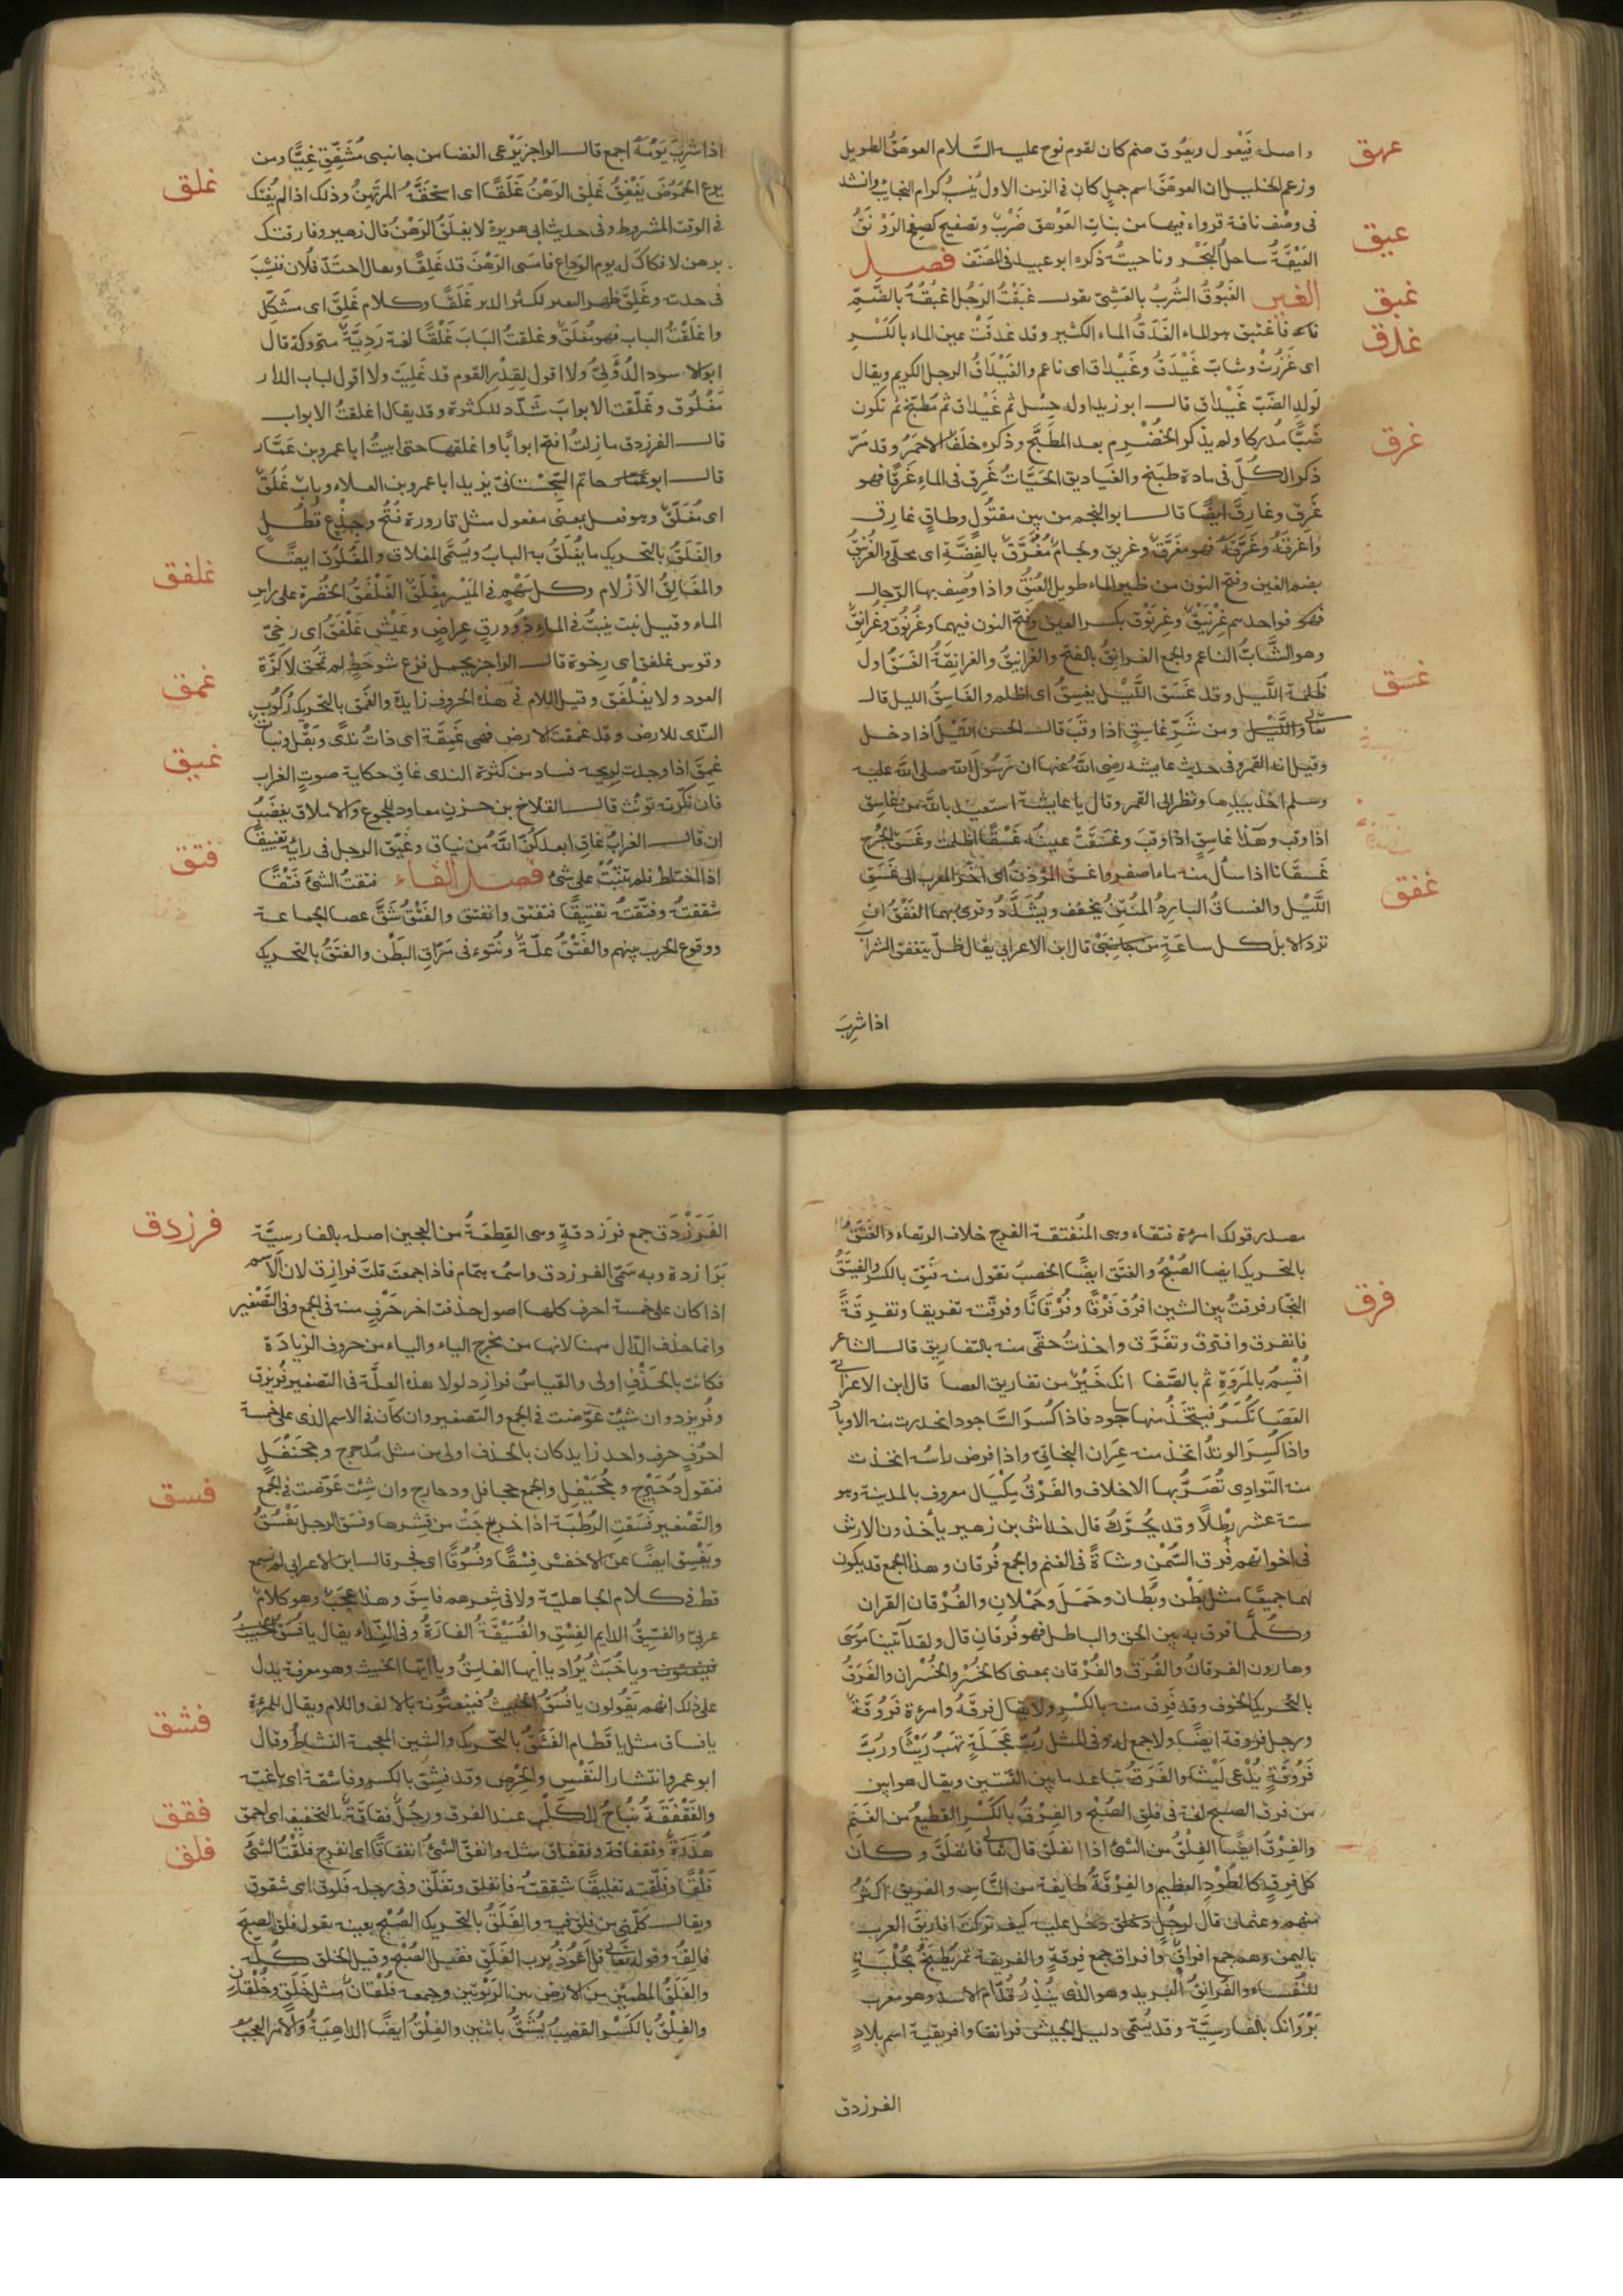 عهق
واصله فَيْعُول ويعُوق صنم كان لقوم نوح عليه السَّلام العوهَقُ الطويل
وزعم الخليل ان العوهَقَ اسم جملٍ كان في الزمن الاول يُنسَبُ كرام النجائب وانشد
عيق
في وصف ناقة قرواء فيها من بنات العَوْهق ضَرْبٌ وتصفيح كصفح الرَوْنَقِ
العَيْقَةُ ساحل البَحْر وناحيتُه ذكره ابو عبيد في المصَنَّف فصـل
غبق
الغين الغَبُوقُ الشُربُ بالعَشِيّ تقول غَبَقْتُ الرَجُل اغْبُقُهُ بالضَّمِّ
غدق
فاغتبق هو الماء الغَدَقُ الماء الكثير وقد غدِقَتْ عين الماء بالكَسْرِ
اى غَزُرَتْ وشابّ غَيْدَقٌ وغَيْداق اى ناعم والغَيْدَاقُ الرجل الكريم ويقال
لولد الضّبّ غَيْداق قال ابو زيد اوله حِسْل ثم غَيْداق ثم مُطَبِّخ ثم تكون
غرق
ضَبًّا مُدركا ولم يذكر الخُضَرِم بعد المطَبِّخ وذكره خلَفٌ الاحمَرُ وقد مَرّ
ذكر الكُلّ في مادة طبَخ والغَياديق الحَيَّاتُ غَرِقَ في الماءِ غَرَقًا فهو
غَرِقٌ وغارِقٌ ايضًا قال ابو النجم من بين مقتُولٍ وطافٍ غارِق
واغْرَقَهُ وغَرَّقَهُ فهو مغَرَّقٌ وغريق ولجامٌ مُغَرَّقٌ بالفِضَّةِ اى محلّى والغُرْنَيْقُ
بضم الغين وفتح النون من طير الماء طويل العُنُقِ واذا وُصِف بها الرّجال
فواحدهم غِرْنَيْقٌ وغِرْنَوْقٌ بكسر الغين وفتح النون فيهما وغُرْنُوقٌ وغُرَانِقٌ
وهو الشّابُّ الناعم والجمع الغَرانِقُ بالفتح والغرانِيقُ والغرانِقَةُ الغَسَقُ اول
غسق
ظُلمة اللَّيل وقد غَسَق اللَّيْل يَغسِقُ اى اظلم والغَاسِقُ الليل قال
تعالى ومن شَرِّ غاسِقٍ اذا وقَبَ قال الحسن اللَّيْل اذا دخل
وقيل انه القمر وفي حديث عايشه رضي اللَّهُ عنها ان رَسُول اللَّه صلى اللَّه عليه
وسلم اخذ بيَدِها ونظر الى القمر وقال يا عايشة استعيذى باللَّه من غاسِقٍ
اذا وقب وهذا غاسِق اذا وَقبَ وغسَقَتْ عينه غَسْقًا اظلمت وغَسَق الجُرح
غفق
غَسَقَانًا اذا سال منه ماء اصفر واغسَقَ المُؤذِنُ اى اخّر المغرب الى غَسَقِ
اللَّيْل والغساقُ البارِدُ المُنتِنُ يخفّف ويُشَدَّدُ وقرى بهما الغَفْقُ ان
ترد الابل كل ساعَةٍ قال ابن الاعرابي يقال ظلّ يتغفّق الشرابَ
اذا شرِبَ
اذا شرِبَ يَوْمَهُ اجمع قال الراجز يَرْعى الغضا من جانبى مُشَفِّقِ غِبًّا ومن
غلق
يرع الحَمُوضَ يَغْفِقِ غَلِقَ الرَهْنُ غَلَقًا اى استحَقَّهُ المرتَهِنُ وذلك اذا لم يُفتَكّ
في الوقت المشروط وفي حديث ابى هريرة لا يغلَقُ الرَهْنُ قال زهير وفارقتك
برهن لا فكاكَ له يوم الوداع فامسى الرَهْنُ قد غَلِقًا ويقال احتدّ فلان فنَشِبَ
في حدته وغَلِقَ ظهر البعير لكثرة الدبر غَلَقًا وكلام غَلِقٌ اى مشكِل
واغلَقْتُ الباب فهو مُغلَقٌ وغلَقتُ البَابَ غَلْقًا لغة رَدِيَّةٌ متروكة قال
ابو الاسود الدُؤَلِيّ ولا اقول لقِدْر القوم قد غلِيَت ولا اقول لباب الدار
مَغْلُوق وغَلَّقت الابوابَ شُدّد للكثرة وقد يقال اغلقتُ الابواب
قال الفرزدق ما زلتُ افتح ابوابًا واغلقها حتى اتيتُ ابا عمرو بن عَمّار
قال ابو حاتم السّجِسْتانيّ يزيد ابا عمرو بن العلاء وبابٌ غُلُقٌ
اى مُغلَقٌ وهو فعل بمعنى مفعول مثل قارورة فُتُح وجِذْعٍ قُطُل
غلفق
والغَلَقُ بالتحريك ما يُغلَقُ به البابُ ويُسَمَّى المغلاق والمُغلُوق ايضًا
والمغَالِقُ الازْلام وكل سَهْمٍ في المَيْسِر مِغْلَق الغَلْفَقُ الخُضْرَةُ على راس
الماء وقيل نبت ينبتُ في الماء ذو ورقٍ عِراضٍ وعَيْش غَلْفَقُ اى رخِيّ
وقوس غلفق اى رخوة قال الراجز يحمل فرع شوحَطٍ لم تُمْحَق لا كَزّة
غمق
العود ولا بغَلْفَقِ وقيل اللام في هذه الحروف زايدة والغَمَقُ بالتحريك رُكُوب
النّدَى للارض وقد غمِقَت الارض فهى غَمِقَةٌ اى ذاتُ ندًى وثِقَلٍ ونباتٌ
غيق
غَمِقٌ اذا وجدت لريحه فسادًا من كثرة الندى غاقِ حكاية صوت الغراب
فان نكّرته نوّنت قال القلاخ بن حزن معاود للجوع والاملاق يغضَبُ
ان قال الغرابُ غاقِ ابعدكُنّ اللَّهُ من نياق وغيّق الرجل في رايه تغييقًا
فتق
اذا اختلط فلم يثبُتْ على شئ فصـل الفاء فتقتُ الشئ فَتْقًا
شققتُه وفتّقته تفتيقًا فتفتق وانفتق والفَتْقُ شقّ عصا الجماعة
ووقوع الحرب بينهم والفَتْقُ علّةٌ ونُتوء في مرَاقّ البَطْن والفَتَقُ بالتحريك
مصدر قولك امرءة فتقاء وهى المُنفَتِقة الفرج خلاف الرتقاء والفَتَقُ
بالتحريك ايضا الصُبْحُ والفتق ايضًا الخصبُ تقول منه فتِقَ بالكسر والفَيْتَقُ
فرق
النجّار فرقتُ بين الشيئين افرُق فَرْقًا وفُرْقانًا وفرّقت تفريقا وتفرِقَةً
فانفرق وافترق وتفَرَّق واخذتُ حقّى منه بالتفاريق قال الشاعر
اُقْسِمُ بالمَرْوَةِ ثم بالصّفا انك خَيْرٌ من تفاريق العصا قال ابن الاعرابي
العَصَا تكسَرُ فيتخذ منها ساجور فاذا كُسِرَ السّاجور اتخذت منه الاوتاد
واذا كُسِرَ الوتدُ اتخذ منه عِرَان البخاتيّ واذا فرض راسُه اتخذت
منه التَوادِى تُصَرُّ بها الاخلاف والفَرْقُ مِكيَال معروف بالمدينة وهو
ستة عشر رِطْلًا وقد يُحرّكُ قال خداش بن زهير ياخذون الارش
في اخوانهم فَرَق السَّمْن وشاةً في الغنم والجمع فُرقان وهذا الجمع قد يكون
لهما جميعًا مثل بَطْن وبُطنان وحَمَل وحُمْلان والفُرْقان القرآن
وكُلّما فُرِق به بين الحقِ والباطل فهو فُرقان قال ولقد آتينا موسَى
وهارون الفرقانُ والفُرْق والفُرْقان بمعنى كالخُسْر والخُسْران والفَرَقُ
بالتحريك الخوف وقد فَرِق منه بالكَسْر ولا يقال فرِقَهُ وامرءة فَرُوقَةٌ
ورجل فروقة ايضًا ولا جمع له وفى المثل رُبّ عَجَلَةٍ تهَبُ رَيْثًا ورُبَّ
فَرُوقَةٍ يُدْعى لَيْثًا والفَرَقُ تباعد ما بين الثنيّتين ويقال هو ابين
من فرق الصبح لغة في فلق الصُبْح والفِرْقُ بالكَسْر القطيع من الغَنَمِ
والفِرْقُ ايضًا الفِلْقُ من الشئ اذا انفلق قال تعالى فانفلَقَ وكان
كل فرقٍ كالطَوْد العظيم والفِرْقَةُ طايفة من النّاس والفريق اكثر
منهم وعثمان قال لرجُلٍ دخل عليه كيف تركتَ افاريق العرب
باليمن وهم جمع افراق وافراق جمع فِرقةٍ والفريقة تمر يُطبَخُ بحُلْبَةٍ
للنُفَساء والفُرانِقُ البريد وهو الذى يُنذِرُ قُدّام الاسد وهو معرب
بَرْوَانك بالفارسيّة وقد يسُمّى دليل الجيش فرانقا وافريقية اسم بلادٍ
الفرزدق
فرزدق
الفَرَزْدَق جمع فرَزدقةٍ وهى القِطعَةُ من العجين اصله بالفارسيَّة
بَرَازدة وبه سُمّى الفرزدق واسمُه همّام فاذا جمعتَ قلتَ فرازِق لان الاسم
اذا كان على خمسة احرف كلها اصول حذفت اخر حَرْفٍ منه في الجمع وفي التَصْغير
وانما حذف الدّال ههنا لانها من مخرج التاء والتاء من حروف الزيادَة
فكانت بالحَذْفِ اولى والقياسُ فرازد لولا هذه العلّة في التصغير فُرَيزق
وفُرَيزد وان شيت عَوّضت في الجمع والتصغير وان كان في الاسم الذى على خمسة
احرُفٍ حرف واحد زايد كان بالحذف اولى من مثل مُدحرج وجَحَنْفَلٍ
فسق
فتقول دُحَيْرج وجُحَيْفِل والجمع جحافل ودحارج وان شِئت عَوّضت في الجمع
والتَصْغير فسَقتِ الرُطَبَة اذا خرجَتْ من قشرها وفسَق الرجل يَفْسُقُ
ويَفْسِق ايضًا عن الاخفش فِسْقًا وفُسُوقًا اى فجر قال ابن الاعرابي لم يُسمع
قط في كلام الجاهليّة ولا في شعرهم فاسِق وهذا عجَبٌ وهو كلامٌ
عربيّ والفِسّيقُ الدايم الفِسْقِ والفُوَيْسِقَةُ الفارَةُ وفي النّداء يقال يا فُسَقُ
ويا خُبَثُ يُراد يا ايها الفاسِقُ ويا ايّها الخبيث وهو معرفة يدل
على ذلك انهم يَقُولون يا فُسَقُ الخبيثُ فينعتُونه بالالف واللام ويقال للمرءة
فشق
يا فساقِ مثل يا قَطام الفَشَقُ بالتحريك والشين المعجمة النشاطُ وقال
ابو عمرو انتشار النَفْسِ والحِرْصِ وقد فشِقَ بالكسر وفاشقهُ اى باغته
فقق
والفَقْفَقَةُ نُباحُ الكَلْب عند الفرق ورجُلٌ فقاقَةٌ بالتخفيف اى احمق
فلق
هُذَرَةٌ وفقفاقة وفقفاق مثله وانفقّ الشئُ انفقاقًا اى انفرج فلَقْتُ الشئَ
فَلْقًا وفلّقته تفليقًا شققته فانفلق وتفلّق وفي رجله فلوق اى شقوق
ويقال كَلّمنى من فلق فيه والفَلَقُ بالتحريك الصُبْح بعينه تقول فلق الصبحَ
فالِقُه وقوله تعالى قل اَعُوذُ برب الفَلَقِ فقيل الصُبْح وقيل الخلق كُلّه
والفَلَقُ المطمئِن من الارض بين الرَبْوتين وجمعه فُلْقانٌ مثل خَلَقٍ وخُلْقان
والفِلْقُ بالكَسْر القضيبُ يُشَقُّ باثنين والفِلْقُ ايضًا الداهِيَةُ والامر العجبُ